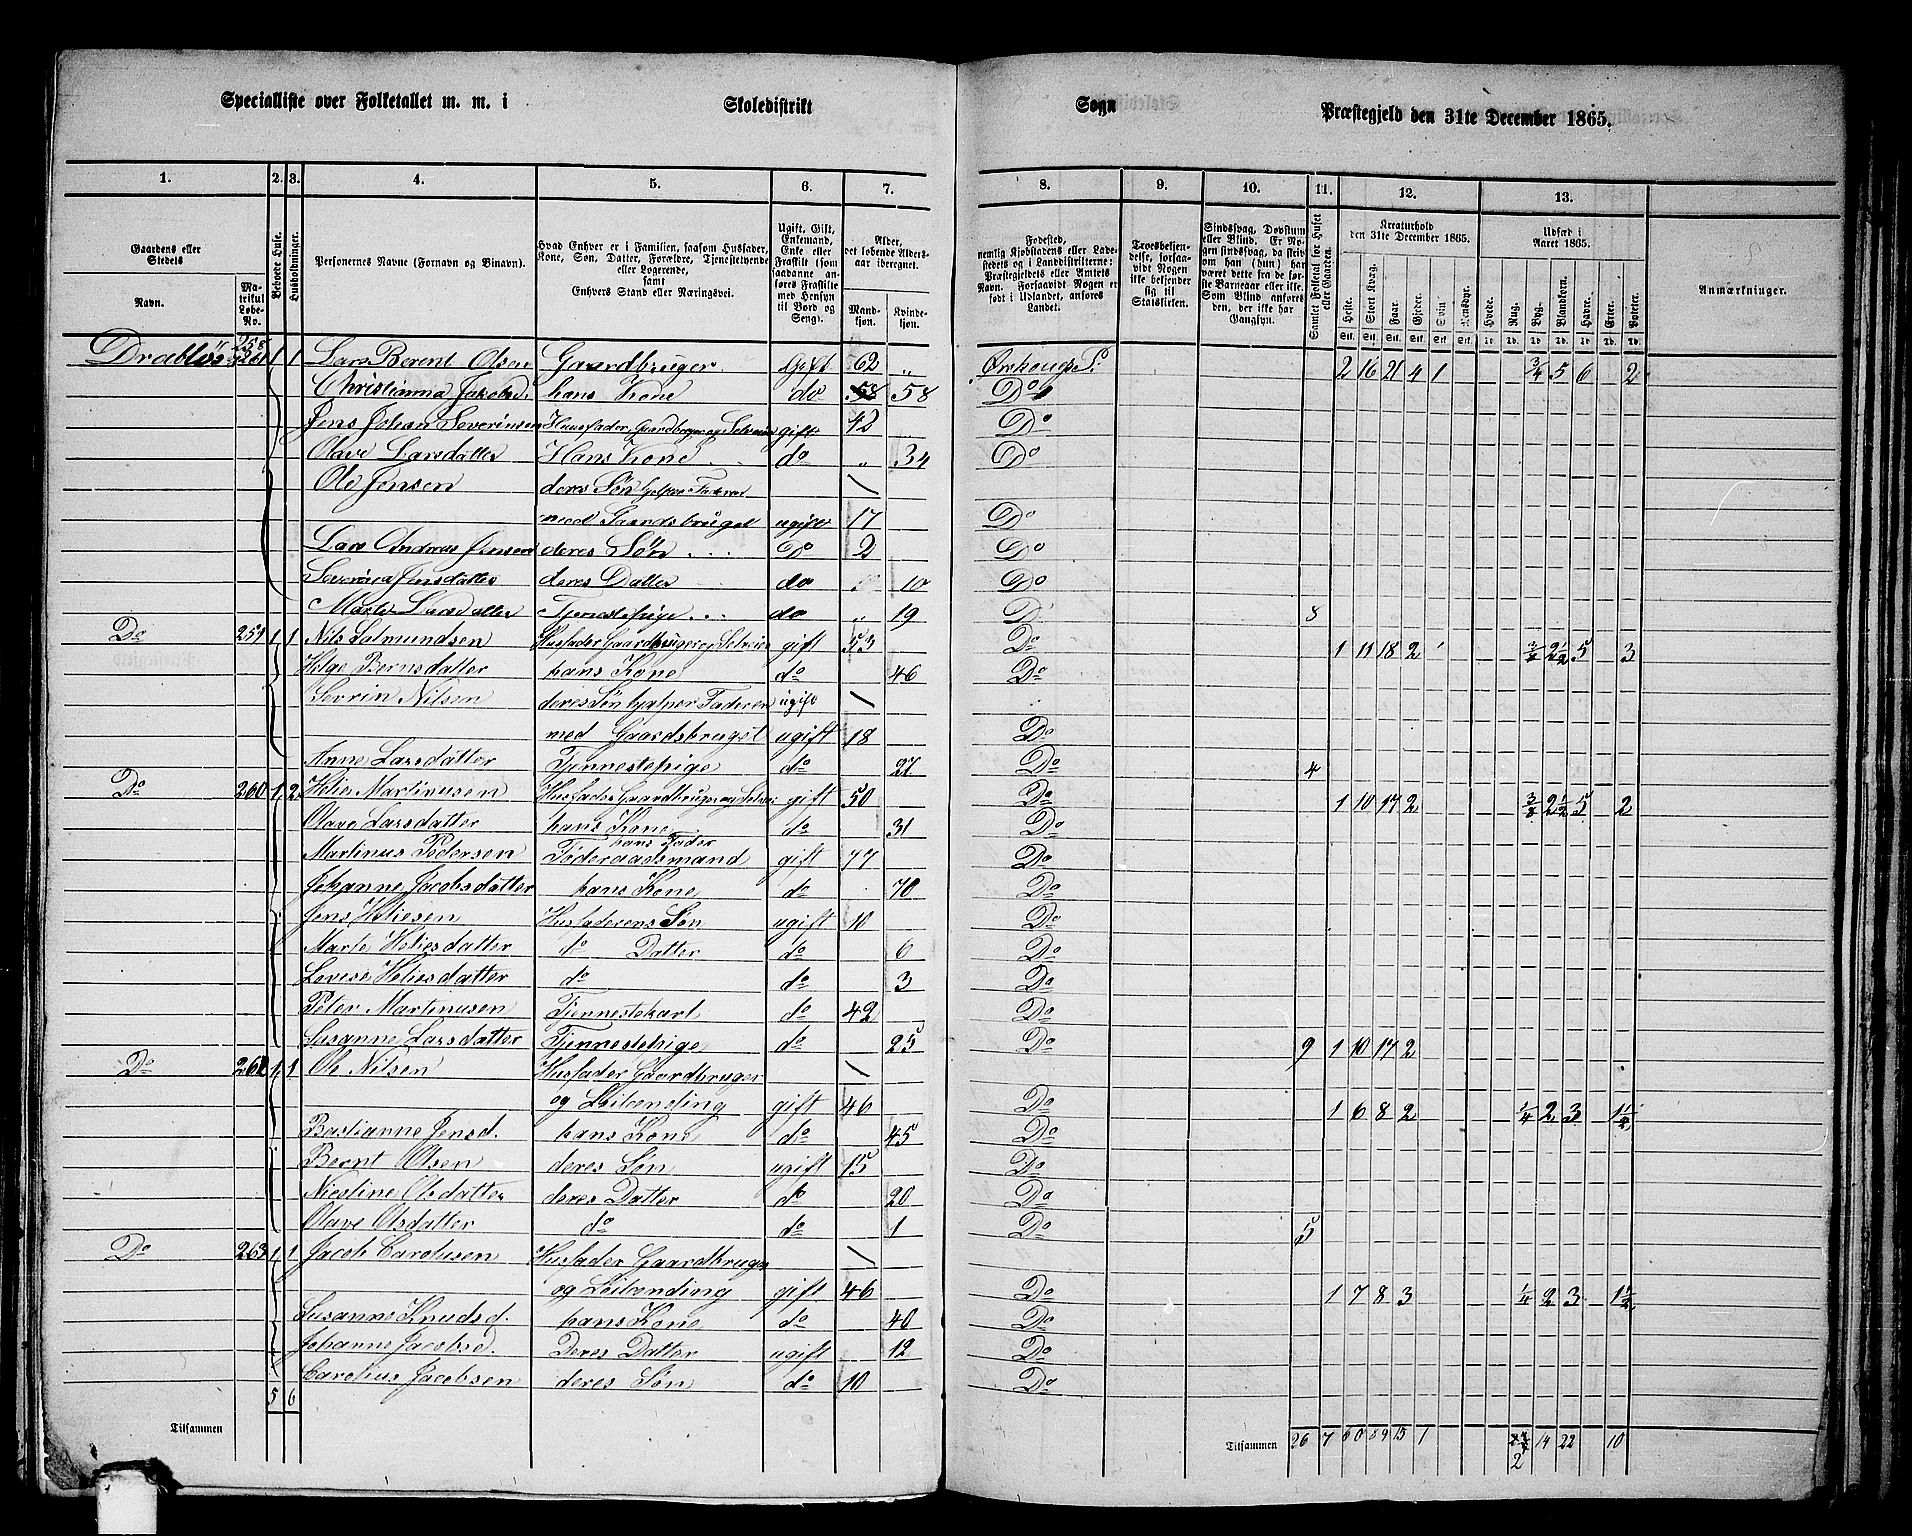 Specialliste over Folketallet m. m. i Skoledistrikt Sogn Præstegjeld den 31te December 1865.
1. 2. 3. 4. 5. 6. 7. 8. 9. 10. 11. 12. 13.
Gaardens eller Stedets
Navn. Matrikul Løbe-No.
Beboede Huse.
Husholdninger.
Personernes Navne (Fornavn og Binavn).
Hvad Enhver er i Familien, saasom Husfader, Kone, Søn, Datter, Forældre, Tjenestetyende eller Logerende, samt Enhvers Stand eller Næringsvei.
Ugift, Gift, Enkemand, Enke eller Fraskilt (som saadanne anføres Fraskilte med Hensyn til Bord og Seng).
Alder, det løbende Aldersaar iberegnet.
Mandkjøn. Kvindekjøn.
Fødested, nemlig Kjøbstadens eller Ladestedets og i Landdistrikterne: Præstegjeldets eller Amtets Navn. Forsaavidt Nogen er født i Udlandet, anføres Landet.
Troesbekjendelse, forsaavidt Nogen ikke bekjender sig til Statskirken.
Sindssvag, Døvstum eller Blind. Er Nogen sindssvag, da skriv om han (hun) har været dette fra de første Barneaar eller ikke. Som Blind anføres den, der ikke har Gangsyn.
Samlet Folketal for Huset eller Gaarden.
Kreaturhold den 31te December 1865.
Heste. Stort Kvæg. Faar. Gjeder. Svin. Rensdyr.
Udsæd i Aaret 1865.
Hvede. Rug. Byg. Blandkorn. Havre. Erter. Poteter.
Anmærkninger.
Dræbløs 258 261 1 1 Lars Berent Olsen Gaardbruger Gift 62 „ Ørskougs P. 2 16 21 4 1 3/4 5 6 2
Christianna Jakobsd. hans Kone do 58 58 Do
Jens Johan Severinsen Huusfader, Gaardbruger og Selveier gift 42 „ Do
Olave Larsdatter Hans Kone do „ 34 Do
Ole Jensen deres Søn hjelper Faderen
med Gaardsbruget ugift 17 Do
Lars Andreas Jensen deres Søn Do 2 Do
Severina Jensdatter deres Datter do 10 Do
Marte Larsdatter Tjenestepige do „ 19 D 8
Do 259 1 1 Nils Salmundsen Husfader Gaardbruger og Selveier gift 53 Do 1 11 18 2 1 3/8 2 1/2 5 3
Helge Bernsdatter hans Kone do 46 Do
Sevrin Nilsen deres Søn hjelper Faderen ugift
med Gaardsbruget ugift 18 Do
Anne Larsdatter Tjennestepige do 27 Do 4
Do 260 1 2 Helie Martinusen Husfader Gaardbruger og Selveier gift 50 Do 1 10 17 2 3/8 2 1/2 5 2
Olave Larsdatter hans Kone do 31 Do
Martinus Pedersen hans Fader Føderaadsmand gift 77 Do
Johanne Jacobsdatter hans Kone do 70 Do
Jens Heliesen Husfaderens Søn ugift 10 Do
Marte Heliesdatter do Datter do 6 Do
Lovise Heliesdatter do do 3 Do
Peter Martinusen Tjennestekarl do 42 Do
Susanne Larsdatter Tjennestepige do 25 Do 9 1 10 17 2
Do 262 1 1 Ole Nilsen Husfader Gaardbruger
og Leilænding gift 46 Do 1 6 8 2 1/4 2 3 1 1/2
Bastianne Jensd. hans Kone do 45 Do
Bernt Olsen deres Søn ugift 15 Do
Nicoline Olsdatter deres Datter do 20 Do
Olave Olsdatter do do 1 Do 5
Do 263 1 1 Jacob Carolusen Husfader Gaardbruger
og Leilænding gift 46 Do 1 7 8 3 1/4 2 3 1 1/2
Susanne Knudsd. hans Kone do 40 Do
Johanne Jacobsd. Deres Datter ugift 12 Do
Carolius Jacobsen deres Søn do 10 Do
5 6
Tilsammen Tilsammen 26 7 60 89 15 1 2 14 22 10